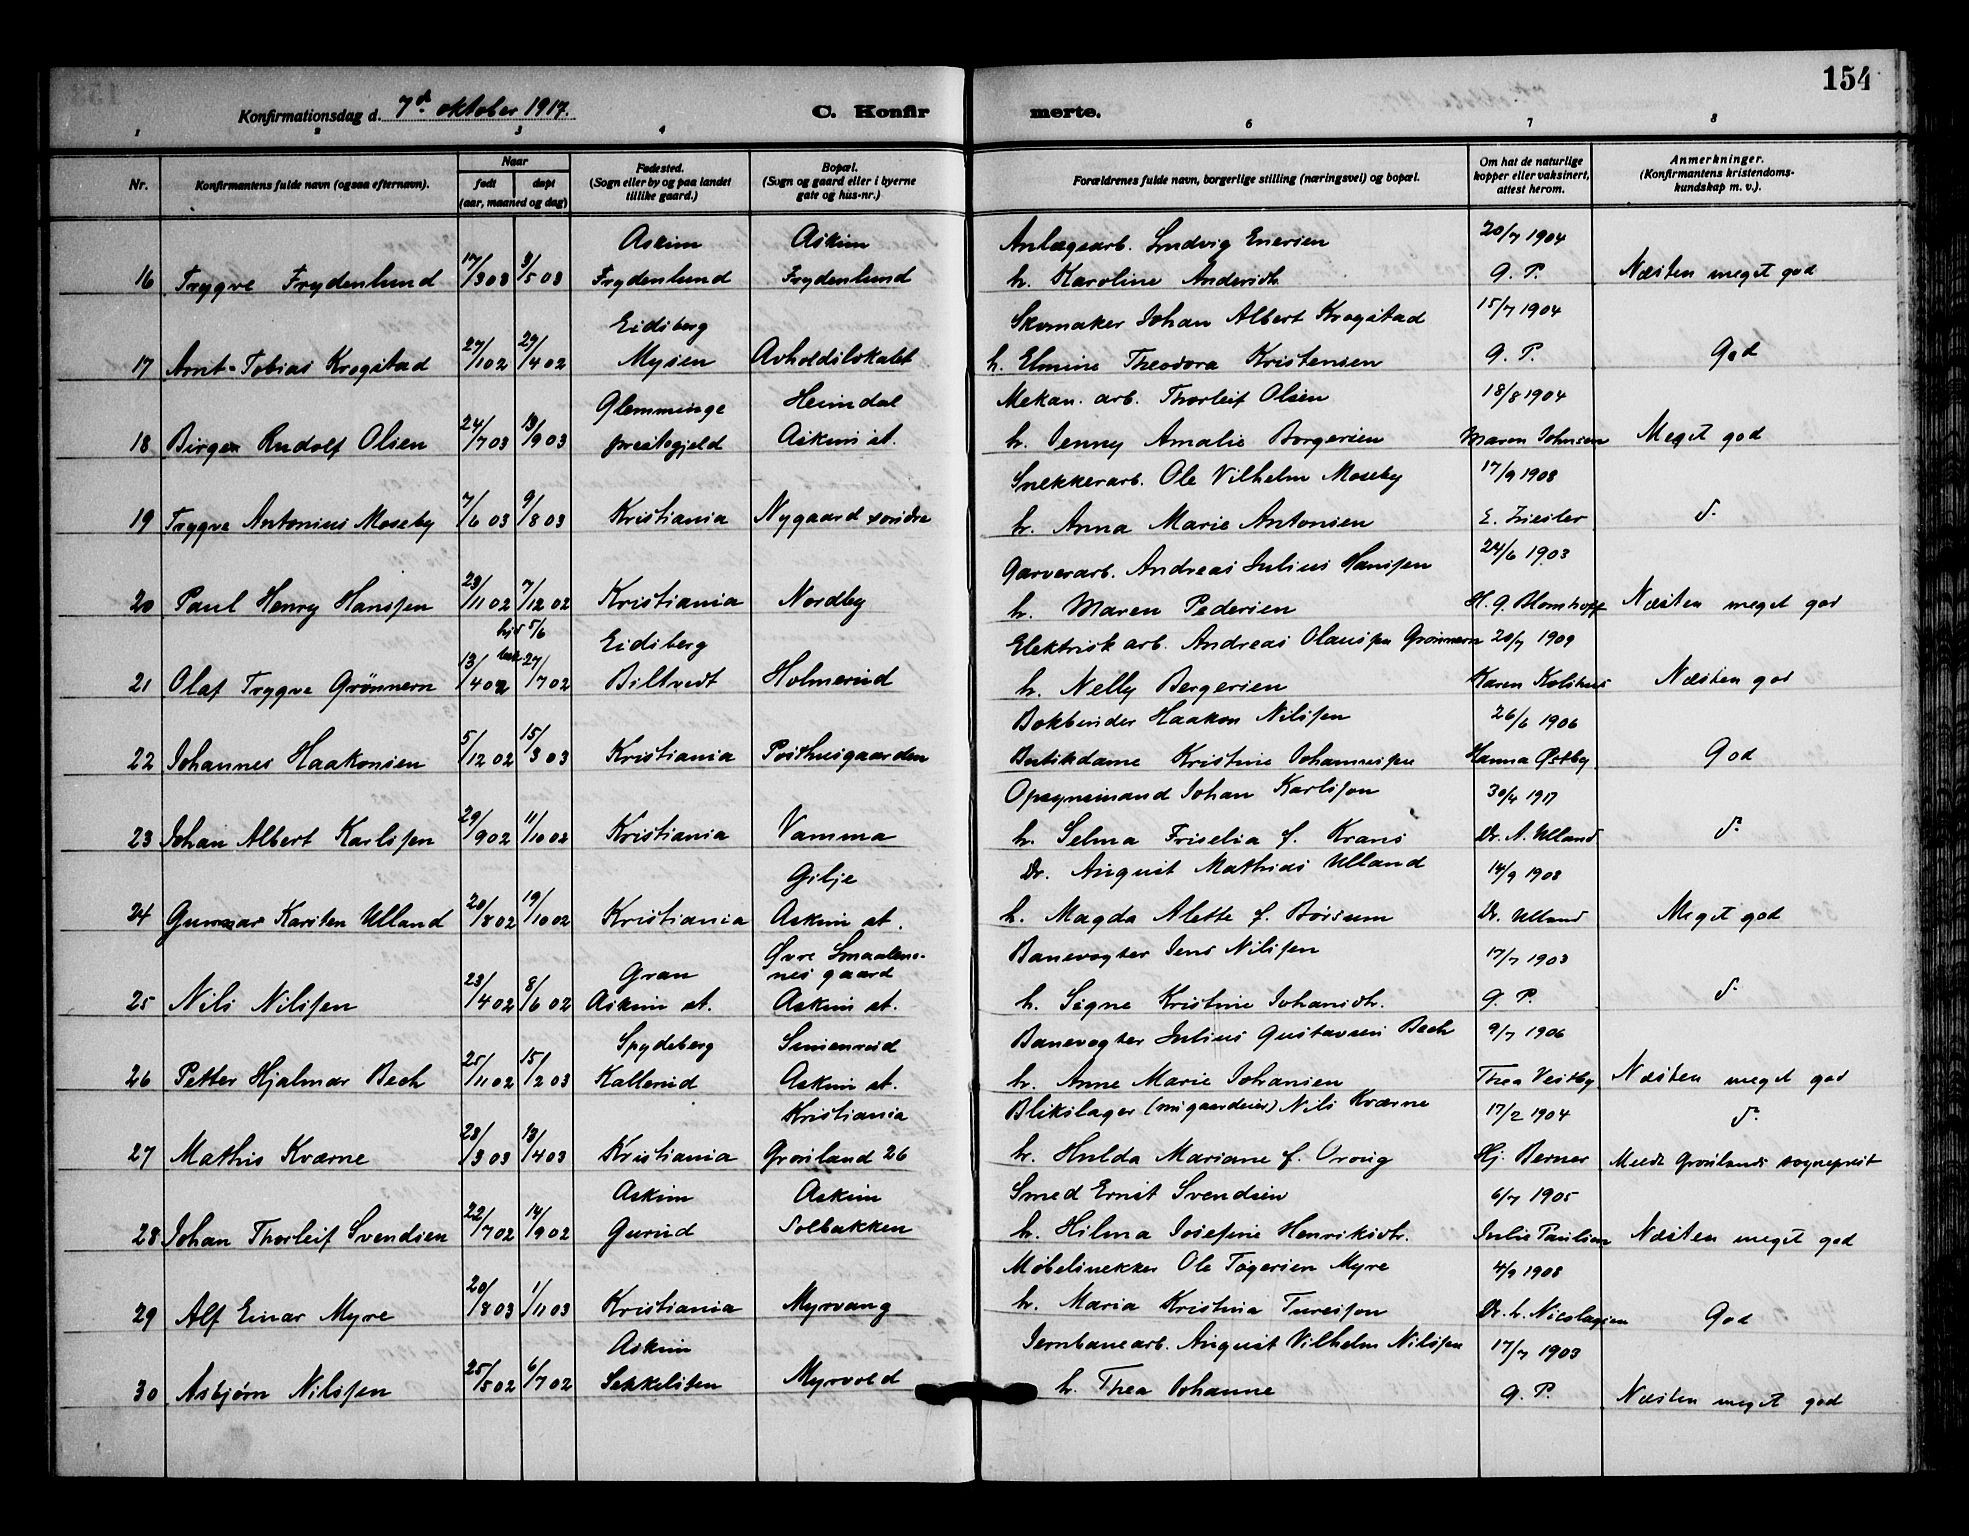 154
Konfirmationsdag d. 7de oktober 1917. C. Konfir merte.
1 2 3 4 6 7 8
Nr. Konfirmantens fulde navn (ogsaa efternavn). Naar født døpt (aar, maaned og dag) Fødested. (Sogn eller by og paa landet tillike gaard.) Bopæl. (Sogn og gaard eller i byerne gate og hus-nr.) Forældrenes fulde navn, borgerlige stilling (næringsvei) og bopæl. Om hat de naturlige kopper eller vaksinert, attest herom. Anmerkninger. (Konfirmantens kristendomskundskap m. v.).
Askim Askim Anlægsarb. Ludvig Enersen 20/7 1904
16 Trygve Frydenlund 17/3 03 3/5 03 Frydenlund Frydenlund h. Karoline Andersdtr. G. P. Næsten meget god
Eidsberg Skomaker Johan Albert Krogstad 15/7 1904
17 Arnt Tobias Krogstad 27/1 02 29/4 02 Mysen Avholdslokalet h. Elmine Theodora Kristensen G. P. God
Glemminge Heimdal Mekan. arb. Thorleif Olsen 18/8 1904
18 Birger Rudolf Olsen 24/7 03 13/9 03 prestegjeld Askim st. h. Jenny Amalie Borgersen Maren Johnsen Meget god
Snekkerarb. Ole Vilhelm Moseby 17/9 1908
19 Trygve Antonius Moseby 7/6 03 9/8 03 Kristiania Nygaard søndre h. Anna Marie Antonsen E. d.
Garverarb. Andreas Julius Hanssen 24/6 1903
20 Paul Henry Hanssen 23/11 02 7/12 02 Kristiania Nordby h. Maren Pedersen H. G. Blomhoff Næsten meget god
hjd 5/6 Eidsberg Elektrisk arb. Andreas Olaussen Grønnern 20/7 1909
21 Olaf Trygve Grønnern 13/4 02 27/7 02 Biltvedt Holmerud h. Nelly Bergersen Karen Kolshus Næsten god
Bokbinder Haakon Nilssen 26/6 1906
22 Johannes Haakonsen 5/12 02 15/3 03 Kristiania Posthusgaarden Butikdame Kristine Johannessen Hanna Østby God
Opsynsmand Johan Karlsson 30/4 1917
23 Johan Albert Karlsson 29/9 02 11/10 02 Kristiania Vamma h. Selma Friselia f. Krans Dr. A. Ulland d.
Gilje Dr. August Mathias Ulland 14/9 1908
24 Gunnar Karsten Ulland 20/8 02 19/10 02 Kristiania Askim st. h. Magda Alette f. Børsum Dr. Ulland Meget god
Gran Øvre Smaalenenes gaard Banevogter Jens Nilssen 17/7 1903
25 Nils Nilssen 23/4 02 8/6 02 Askim st. Askim st. h. Signe Kristine Johansdtr. G. P. d.
Spydeberg Simenrud Banevogter Julius Gustavsen Bech 9/7 1906
26 Petter Hjalmar Bech 25/11 02 15/2 03 Kallerud Askim st. h. Anne Marie Johansen Thea Vestby Næsten meget god
Kristiania Blikslager (nu gaardeier) Nils Kværne 17/2 1904 d.
27 Mathis Kværne 23/3 03 13/4 03 Kristiania Grønland 26 h. Hulda Mariane f. Orvig Hj. Berner Meldt Grønlands sogneprest
Askim Askim Smed Ernst Svendsen 6/7 1905
28 Johan Thorleif Svendsen 22/7 02 14/9 02 Gurud Solbakken h. Hilma Josefine Henriksdtr. Julie Paulsen Næsten meget god
Møbelsnekker Ole Tøgersen Myre 4/9 1908
29 Alf Einar Myre 20/8 03 1/11 03 Kristiania Myrvang h. Maria Kristina Turesson Dr. L. Nicolaysen God
Askim Jernbanearb. August Vilhelm Nilssen 17/7 1903
30 Asbjørn Nilssen 25/5 02 6/7 02 Sekkelsten Myrvold h. Thea Johanne G. P. Næsten meget god